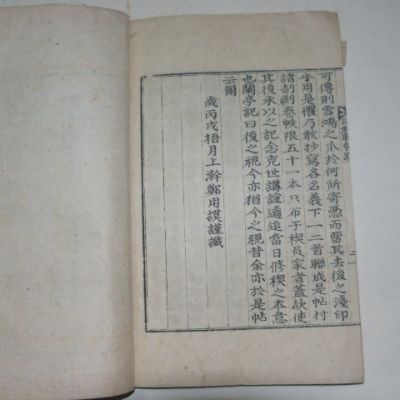 可傳則雪鴻之爪於何所寄憑而留其去後之淺印
乎用是懼乃敢抄寫各名義下一二首聯成是帖付
諸剞劂卷帙限五十一本只布于稧員家者蓋欲使
其後承以之記念克世講誼適追當日修稧之本意
也蘭亭記曰後之視今亦猶今之視昔余亦於是帖
云爾
歲丙戌梧月上澣鄭用謨謹識